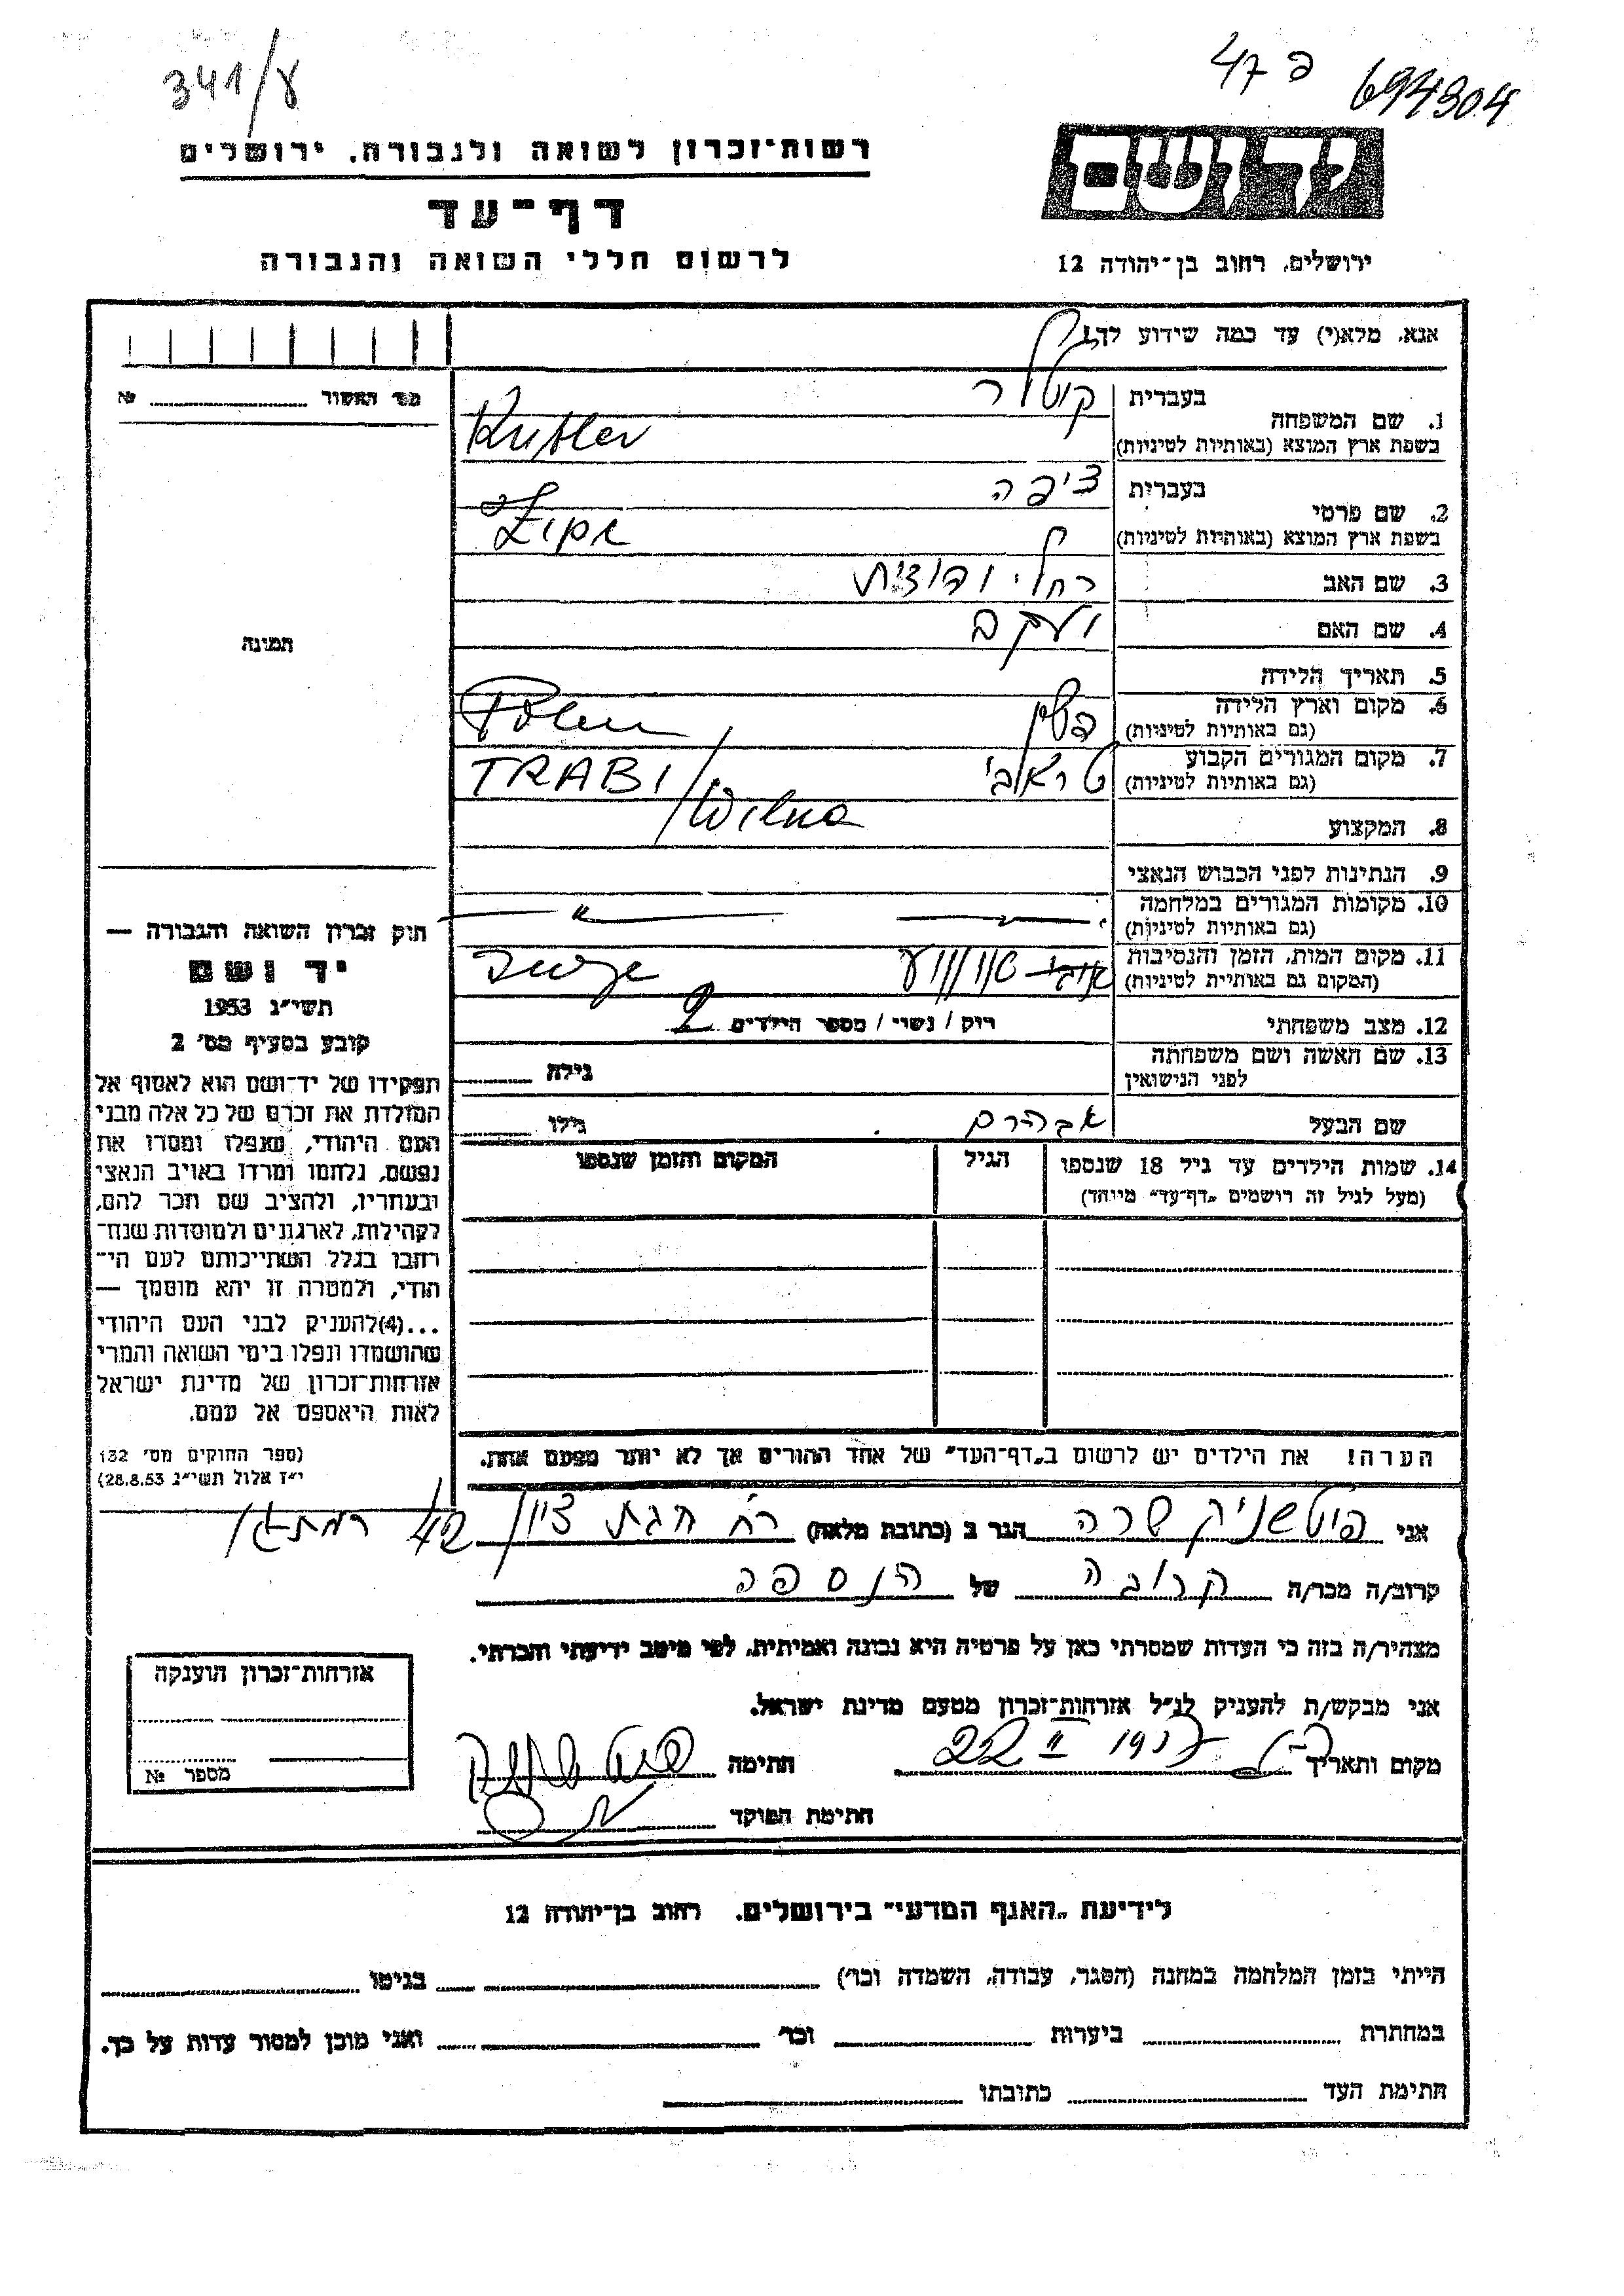 341/ע
47 פ 694304
רשות־זכרון לשואה ולגבורה. ירושלים
יד ושם
דף־עד
לרשום חללי השואה והגבורה
ירושלים, רחוב בן־יהודה 12
אנא, מלא(י) עד כמה שידוע לך!
מס׳ האשור № 
1. שם המשפחה
בעברית קוטלר
בשפת ארץ המוצא (באותיות לטיניות) Kutler
2. שם פרטי
בעברית ציפה
בשפת ארץ המוצא (באותיות לטיניות) Zipa
3. שם האב
4. שם האם יעקב
5. תאריך הלידה
6. מקום וארץ הלידה
(גם באותיות לטיניות) פולין Polen
7. מקום המגורים הקבוע
(גם באותיות לטיניות) טראבי TRABI / Wilna
8. המקצוע
9. הנתינות לפני הכבוש הנאצי
10. מקומות המגורים במלחמה
(גם באותיות לטיניות) — " —
11. מקום המות, הזמן והנסיבות
(המקום גם באותיית לטיניות)
12. מצב משפחתי רווק / נשוי / מספר הילדים 2
13. שם האשה ושם משפחתה
לפני הנישואין
גילה
שם הבעל אברהם
גילו
14. שמות הילדים עד גיל 18 שנספו
(מעל לגיל זה רושמים „דף־עד״ מיוחד)
הגיל
המקום והזמן שנספו
תמונה
חוק זכרון השואה והגבורה —
יד ושם
תשי״ג 1953
קובע בסעיף מס׳ 2
תפקידו של יד־ושם הוא לאסוף אל
המולדת את זכרם של כל אלה מבני
העם היהודי, שנפלו ומסרו את
נפשם, נלחמו ומרדו באויב הנאצי
ובעוזריו, ולהציב שם וזכר להם,
לקהילות, לארגונים ולמוסדות שנח־
רבו בגלל השתייכותם לעם הי־
הודי, ולמטרה זו יהא מוסמך —
...(4)להעניק לבני העם היהודי
שהושמדו ונפלו בימי השואה והמרי
אזרחות־זכרון של מדינת ישראל
לאות היאספם אל עמם.
(ספר החוקים מס׳ 132
י״ז אלול תשי״ג 28.8.53)
הערה! את הילדים יש לרשום ב„דף־העד״ של אחד ההורים אך לא יותר מפעם אחת.
אני פוטשניק שרה הגר ב (כתובת מלאה) רח׳ חבת ציון 42 רמת גן
קרוב/ה מכר/ה קרובה של הנספה
מצהיר/ה בזה כי העדות שמסרתי כאן על פרטיה היא נכונה ואמיתית, לפי מיטב ידיעתי והכרתי.
אני מבקש/ת להעניק לנ״ל אזרחות־זכרון מטעם מדינת ישראל.
מקום ותאריך 22 II חתימה
חתימת הפוקד
אזרחות־זכרון הוענקה
מספר №
לידיעת „האגף המדעי״ בירושלים. רחוב בן־יהודה 12
הייתי בזמן המלחמה במחנה (הסגר, עבודה, השמדה וכו׳) בגיטו
במחתרת ביערות וכו׳ ואני מוכן למסור עדות על כך.
חתימת העד כתובתו